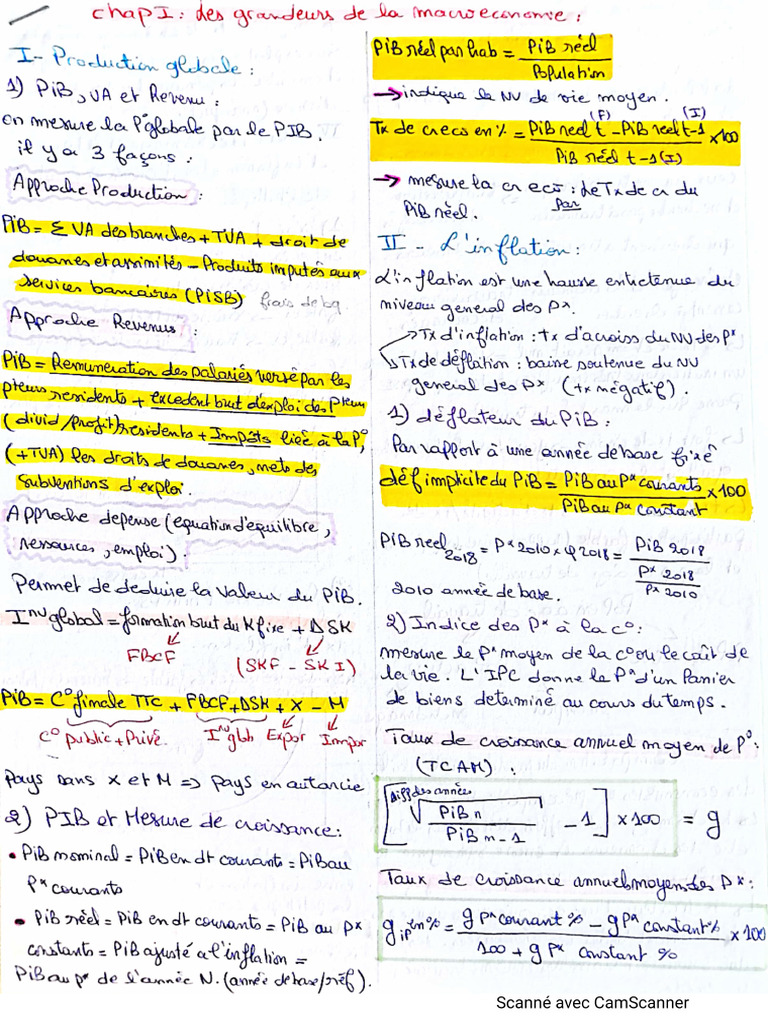 chap I : les grandeurs de la macroeconomie :
I- Production globale :
1) PiB, VA et Revenu :
on mesure la P° globale par le PIB.
il y a 3 façons :
Approche Production :
PiB = Σ VA des branches + TVA + droit de
douanes et assimités - Produits imputés aux
services bancaires (PiSB) frais de bq.
Approche Revenus :
PiB = Remuneration des salariés versé par les
pteurs residents + excedent brut d'exploi des Pteurs
(divid/profit) residents + Impôts liée à la P°,
(+TVA) les droits de douanes, nets des
Subventions d'exploi.
Approche depense (equation d'equilibre,
ressources, emploi) :
Permet de deduire la valeur du PiB.
Inv global = formation brut du K fixe + ΔSK
FBCF
(SKF - SKI)
PiB = C° finale TTC + FBCF + ΔSK + X - M
C° public + Privé. Inv glb Expor Impor
Pays sans X et M => pays en autarcie
2) PIB et Mesure de croissance :
• PiB nominal = PiB en dt courants = PiB au
Px courants
• PiB réel = PiB en dt courants = PiB au Px
constants = PiB ajusté a l'inflation =
PiB au px de l'année N. (année de base/réf).
PiB réel par hab = PiB réel
Population
→ indique le NV de vie moyen.
(F) (I)
Tx de crecs en % = PiB reel t - PiB reel t-1 x100
PiB réel t-1 (I)
→ mesure la cr eco : Le Tx de cr du
par
PiB réel.
II - L'inflation :
L'inflation est une hausse entretenue du
niveau general des Px.
Tx d'inflation : tx d'acroiss du NV des Px
Tx de déflation : baisse soutenue du NV
general des Px (tx négatif).
1) déflateur du PiB :
Par rapport à une année de base fixé
déf implicite du PiB = PiB au Px courants x100
PiB au Px constant
PiB reel 2018 = Px 2010 x φ 2018 = PiB 2018
Px 2018
Px 2010
2010 année de base.
2) Indice des Px à la c° :
mesure le Px moyen de la c° ou le coût de
la vie. L'IPC donne le Px d'un Panier
de biens determiné au cours du temps.
Taux de croissance annuel moyen de P° :
(TCAM) :
Diff des années
[ √ PiB n - 1 ] x 100 = g
PiB n-1
Taux de croissance annuel moyen des Px :
g ip en % = g Px courant % - g Px constant % x 100
100 + g Px constant %
Scanné avec CamScanner